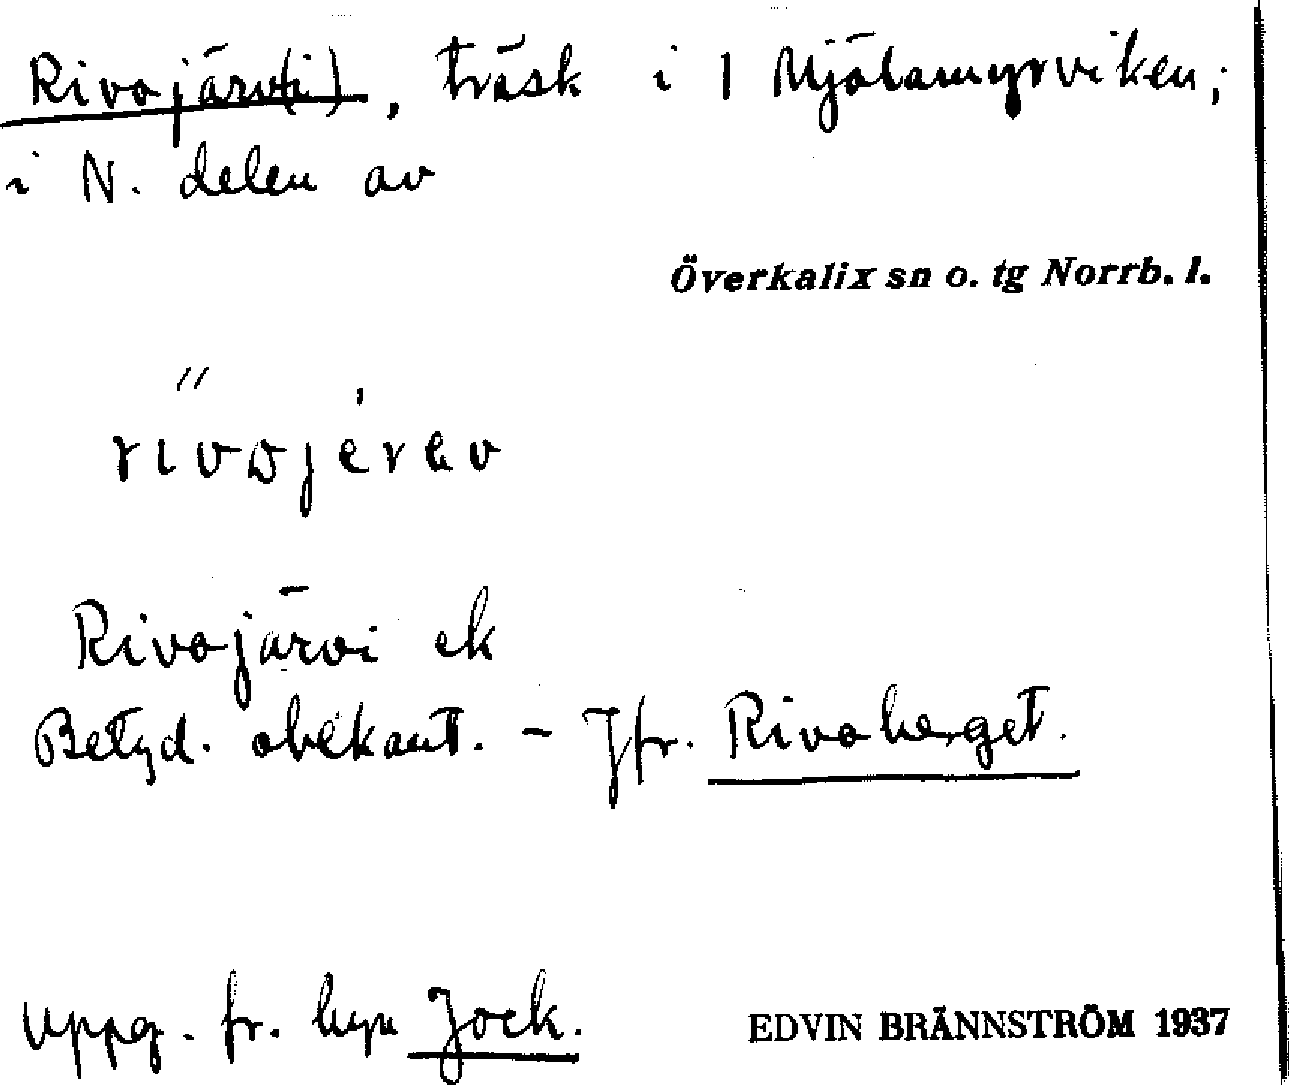 Rivojärv(i), träsk i 1 Mjölamyrviken;
i N. delen av
Överkalix sn o. tg Norrb. l.
Rivojärvi ek
Betyd. obekant. - Jfr. Rivoberget.
Uppg. fr. byn Jock.
EDVIN BRÄNNSTRÖM 1937